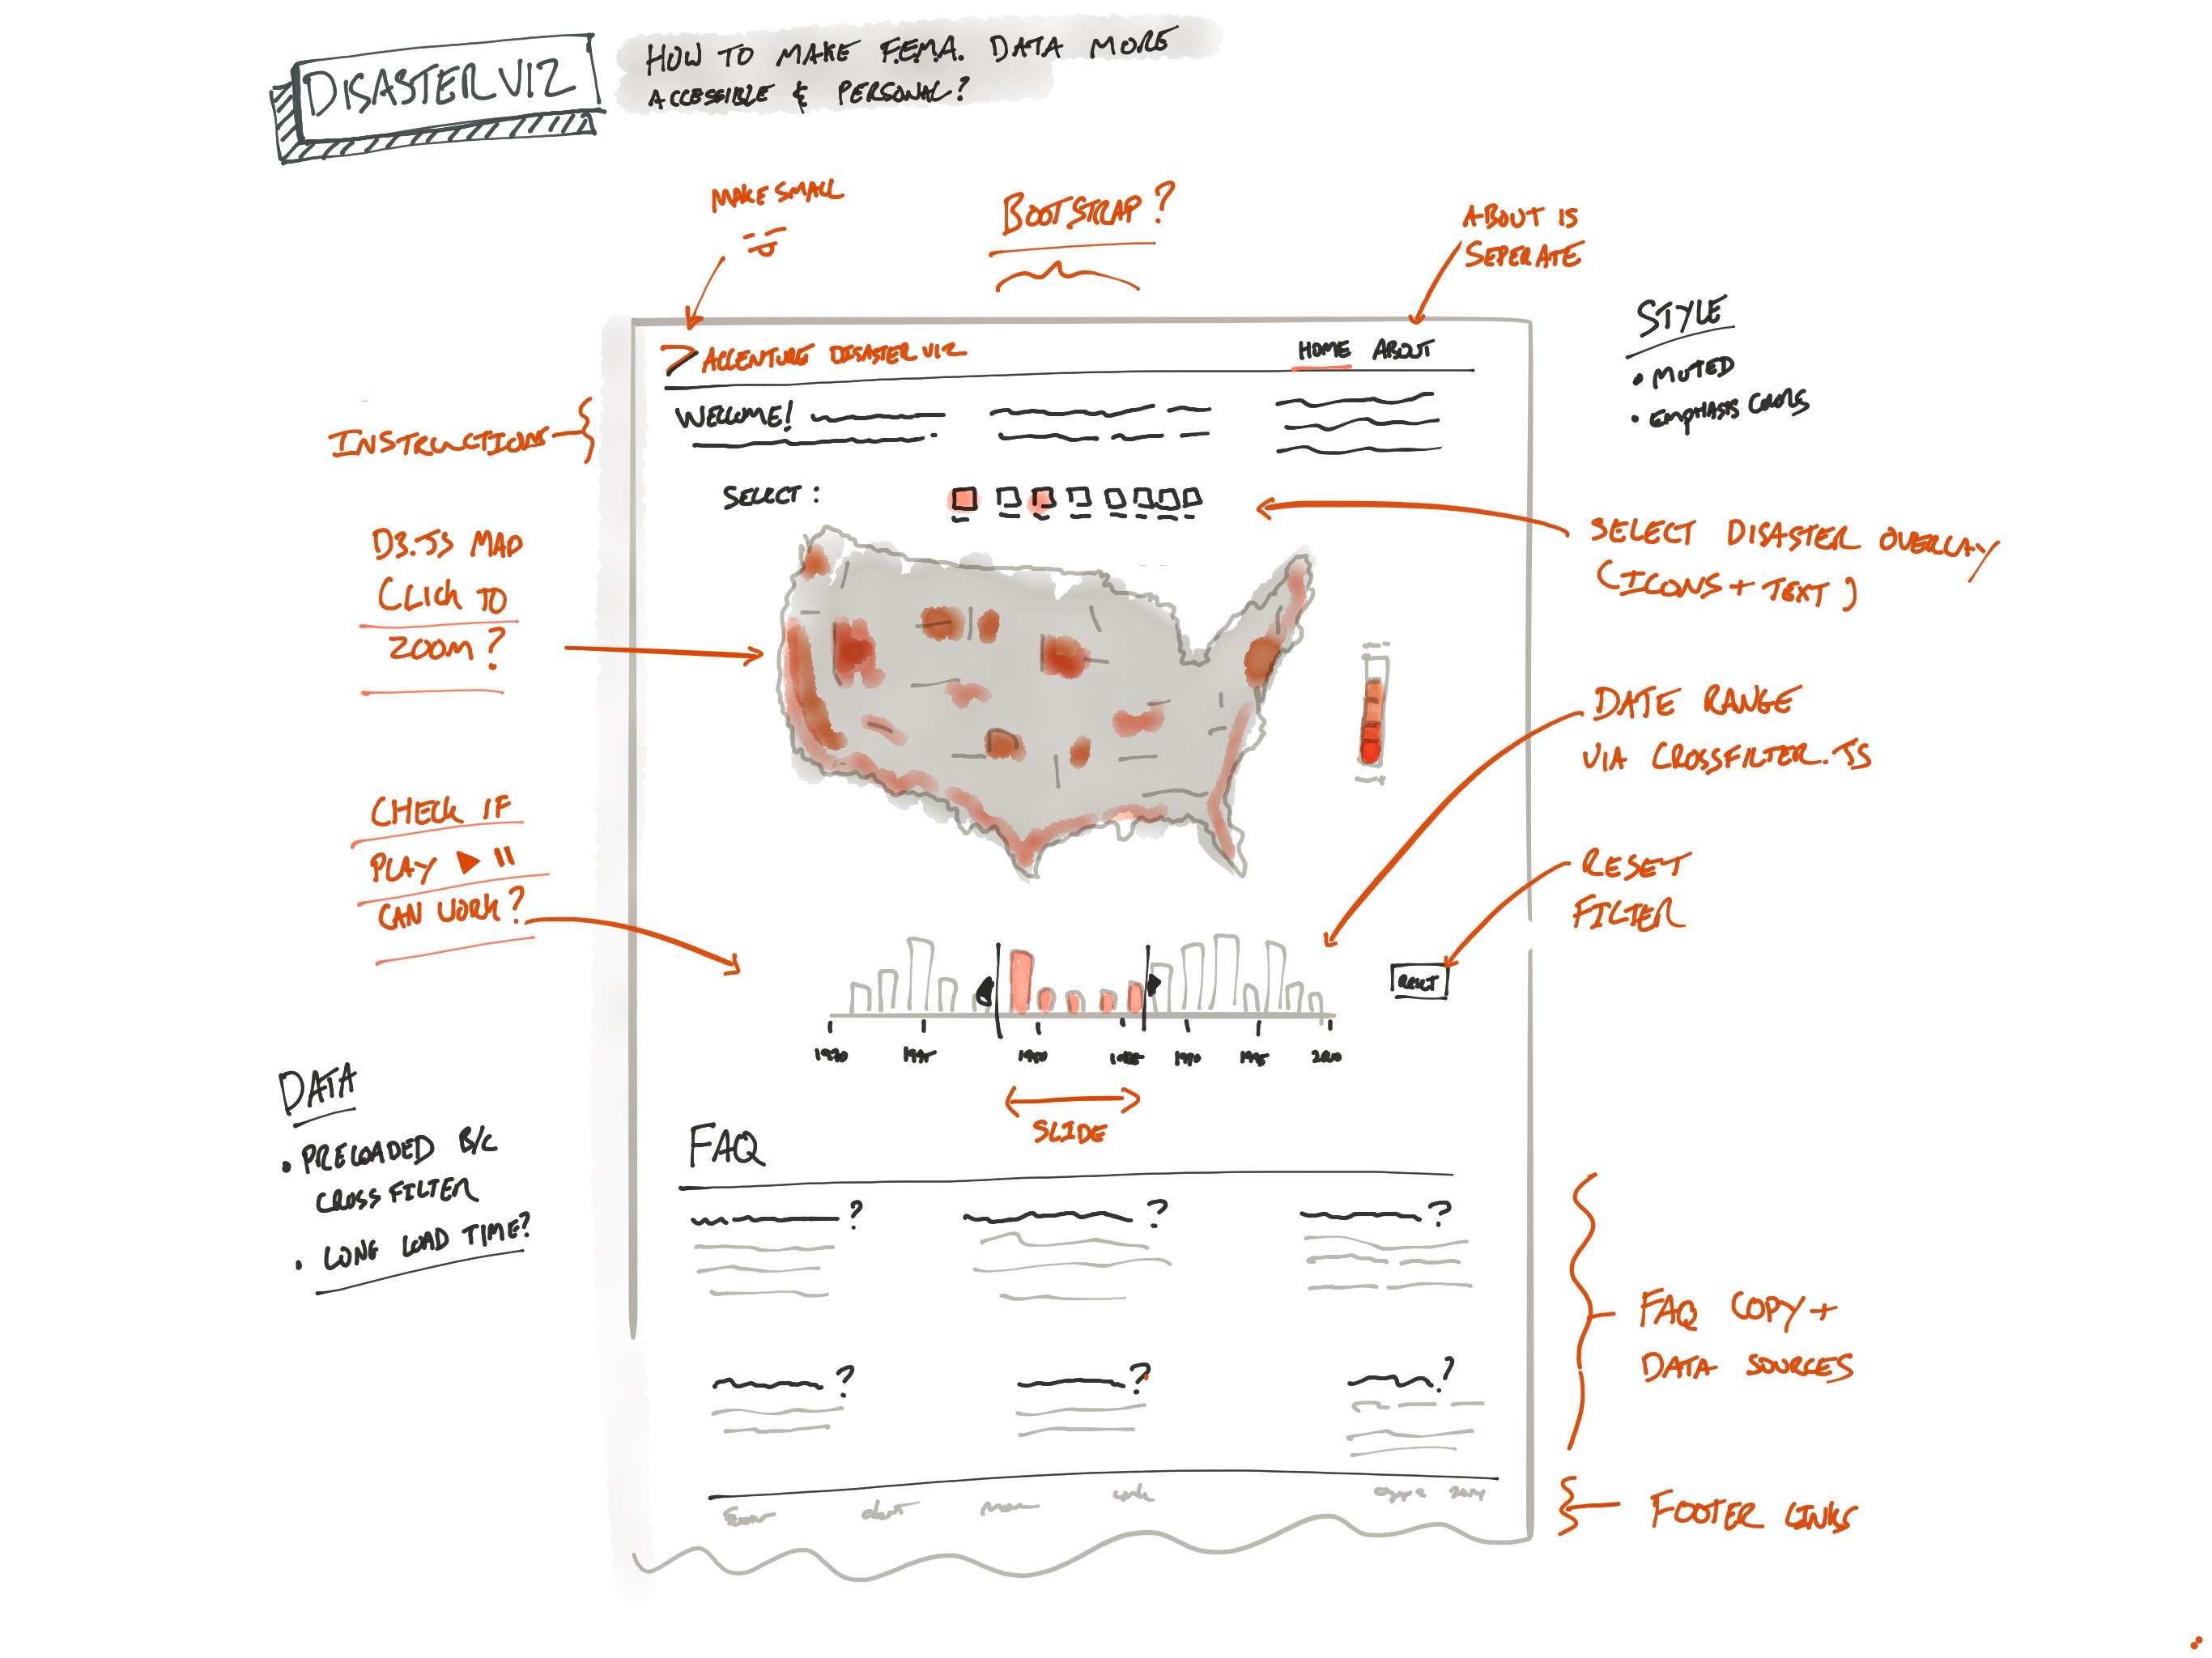 DISASTER VIZ
HOW TO MAKE F.E.M.A. DATA MORE
ACCESSIBLE & PERSONAL?
MAKE SMALL
BOOTSTRAP?
ABOUT IS
SEPERATE
STYLE
• MUTED
• EMPHASIS COLORS
ACCENTURE DISASTER VIZ
HOME ABOUT
WELCOME!
INSTRUCTIONS
SELECT:
SELECT DISASTER OVERLAY
(ICONS + TEXT)
D3.JS MAP
CLICK TO
ZOOM?
DATE RANGE
VIA CROSSFILTER.JS
CHECK IF
PLAY ▶ ⏸
CAN WORK?
RESET
FILTER
RESET
1970 1975 1980 1985 1990 1995 2000
SLIDE
DATA
• PRELOADED B/C
CROSSFILTER
• LONG LOAD TIME?
FAQ
? ? ?
? ? ?
FAQ COPY +
DATA SOURCES
FOOTER LINKS